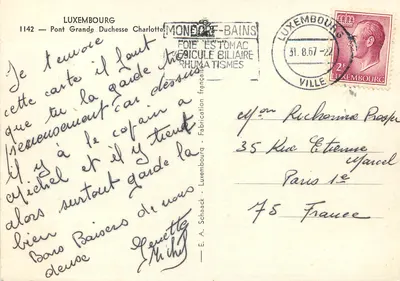 LUXEMBOURG
1142 - Pont Grande Duchesse Charlotte
Je t'envoie
cette carte il faut
que tu la garde très
car dessus
il y a le copain a
Michel et il y tient
alors surtout garde la
bien
Bons Baisers de nous
deuse
Michel
— E. A. Schaack - Luxembourg - Fabrication française
MONDORF-BAINS
FOIE ESTOMAC
VESICULE BILIAIRE
RHUMATISMES
LUXEMBOURG
31.8.67
VILLE
LUXEMBOURG
Mon Richomme Prosper
35 Rue Etienne
Marcel
Paris 1e
75 France